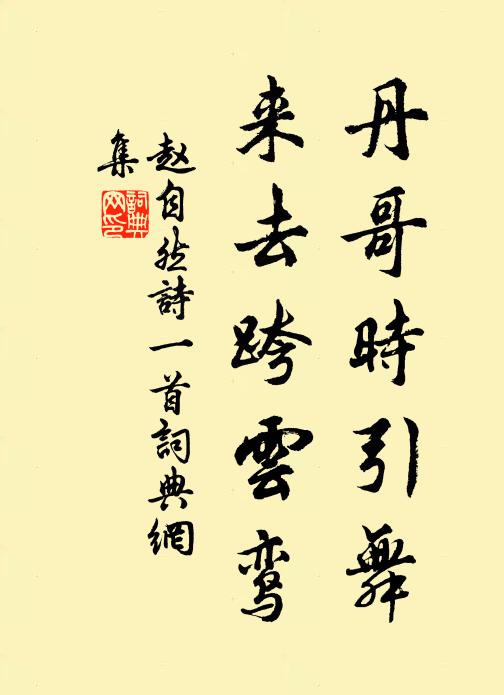 丹哥時引舞
来去跨雲鸾
赵自然詩一首詞典網
集
詞典
网印